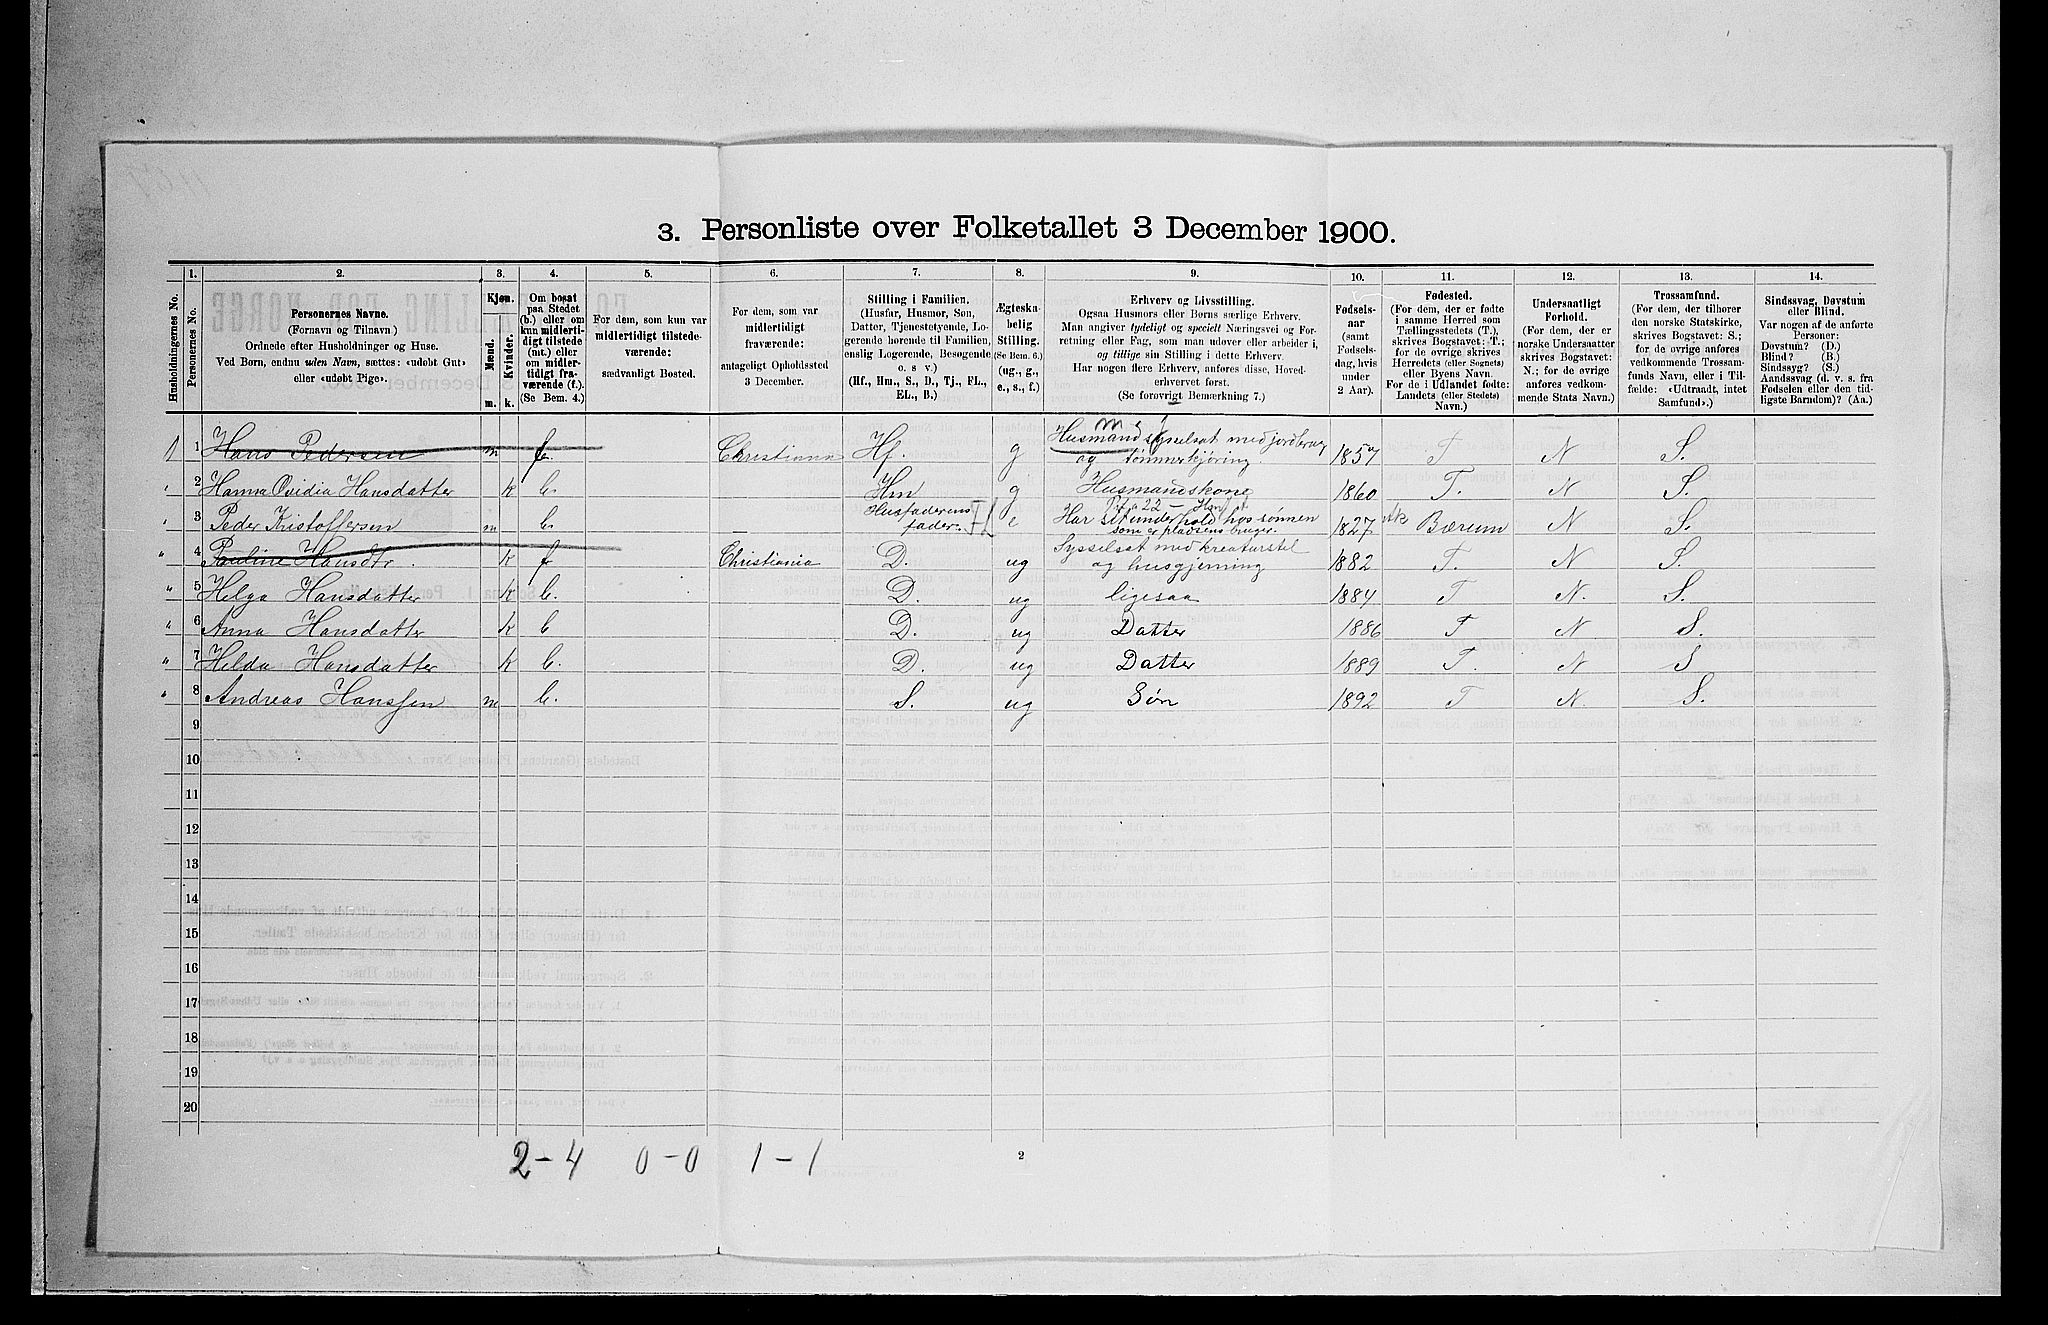 3. Personliste over Folketallet 3 December 1900.
1. 2. 3. 4. 5. 6. 7. 8. 9. 10. 11. 12. 13. 14.
Husholdningernes No.
Personernes No.
Personernes Navne.
(Fornavn og Tilnavn)
Ordnede efter Husholdninger og Huse.
Ved Børn, endnu uden Navn, sættes: «udøbt Gut»
eller «udøbt Pige».
Kjøn.
Mænd. Kvinder.
m. k.
Om bosat
paa Stedet
(b.) eller om
kun midlerti-
digt tilstede
(mt.) eller
om midler-
tidigt fra-
værende (f.).
(Se Bem. 4.)
For dem, som kun var
midlertidigt tilstede-
værende:
sædvanligt Bosted.
For dem, som var
midlertidigt
fraværende:
antageligt Opholdssted
3 December.
Stilling i Familien.
(Husfar, Husmor, Søn,
Datter, Tjenestetyende, Lo-
gerende hørende til Familien,
enslig Logerende, Besøgende
o. s v.)
(Hf., Hm., S., D., Tj., FL.,
EL., B.)
Ægteska-
belig
Stilling.
(Se Bem. 6.)
(ug., g.,
e., s., f.)
Erhverv og Livsstilling.
Ogsaa Husmors eller Børns særlige Erhverv.
Man angiver tydeligt og specielt Næringsvei og For-
retning eller Fag, som man udover eller arbeider i,
og tillige sin Stilling i dette Erhverv.
Har nogen flere Erhverv, anføres disse, Hoved-
erhvervet først.
(Se forøvrigt Bemærkning 7.)
Fødsels-
aar
(samt
Fødsels-
dag, hvis
under
2 Aar).
Fødested.
(For dem, der er fødte
i samme Herred som
Tællingsstedets (T.),
skrives Bogstavet: T.;
for de øvrige skrives
Herredets (eller Sognets)
eller Byens Navn.
For de i Udlandet fødte:
Landets (eller Stedets)
Navn.)
Undersaatligt
Forhold.
(For dem, der er
norske Undersaatter
skrives Bogstavet:
N.; for de øvrige
anføres vedkom-
mende Stats Navn.)
Trossamfund.
(For dem, der tilhører
den norske Statskirke,
skrives Bogstavet: S.;
for de øvrige anføres
vedkommende Trossam-
funds Navn, eller i Til-
fælde: «Udtraadt, intet
Samfund».)
Sindssvag, Døvstum
eller Blind.
Var nogen af de anførte
Personer:
Døvstum? (D.)
Blind? (B.)
Sindssyg? (S.)
Aandssvag (d. v. s. fra
Fødselen eller den tid-
ligste Barndom)? (Aa.)
1 1 Hans Pedersen m f. Christiania Hf. g Husmand sysselsat med jordbrug
og tømmerkjøring. 1857 T N S.
" 2 Hanna Ovidia Hansdatter k b. Hm g Husmandskone 1860 T. N S.
" 3 Peder Kristoffersen m b. Husfaderens
fader. FL e Har sit underhold hos sønnen
som er pladsens bruger. 1827 Bærum N S.
" 4 Pauline Hansdtr. k f Christiania D. ug Sysselsat med kreaturstel
og husgjerning 1882 T. N S.
" 5 Helga Hansdatter k b. D. ug ligesaa 1884 T N. S.
" 6 Anna Hansdatter k b D. ug Datter 1886 T N. S.
" 7 Helda Hansdatter k b. D. ug Datter 1889 T. N S
" 8 Andreas Hanssen m b. S. ug Søn 1892 T N. S.
9
10
11
12
13
14
15
16
17
18
19
20
2-4 0-0 1-1
2